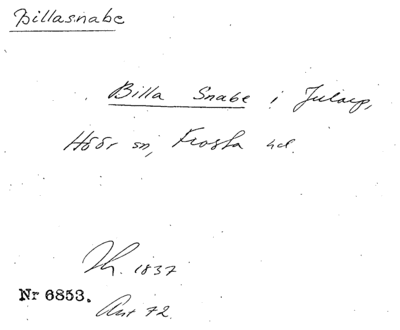 Billasnabe
Billa Snabe i Jularp,
Höör sn, Frosta hd.
Th. 1837
Nr 6853.
Ant 72